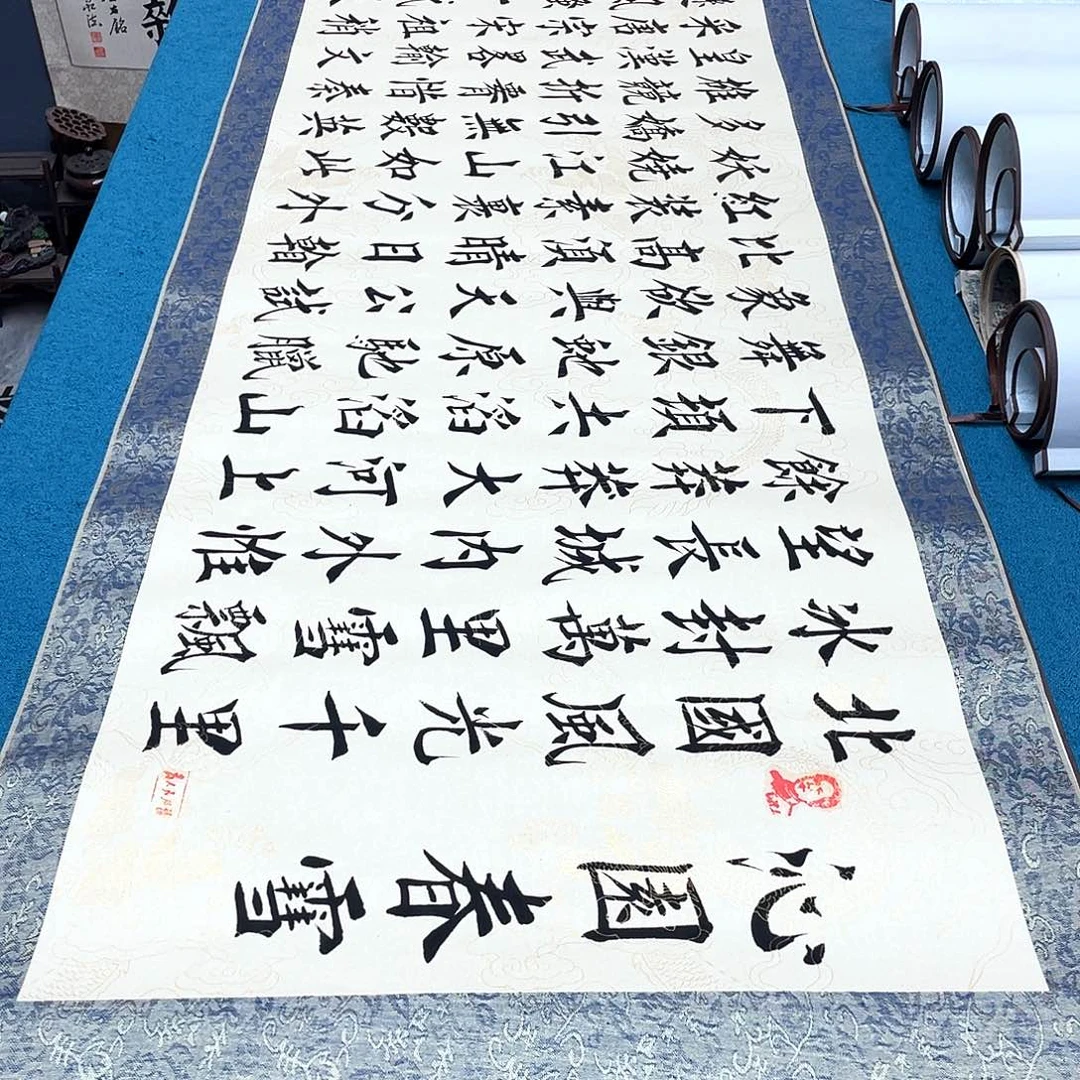 沁園春雪
北國風光千里
冰封萬里雪飄
望長城內外惟
餘莽莽大河上
下頓失滔滔山
舞銀蛇原馳臘
象欲與天公試
比高須晴日看
紅裝素裹分外
妖嬈江山如此
多嬌引無數英
雄競折腰惜秦
皇漢武略輸文
采唐宗宋祖稍